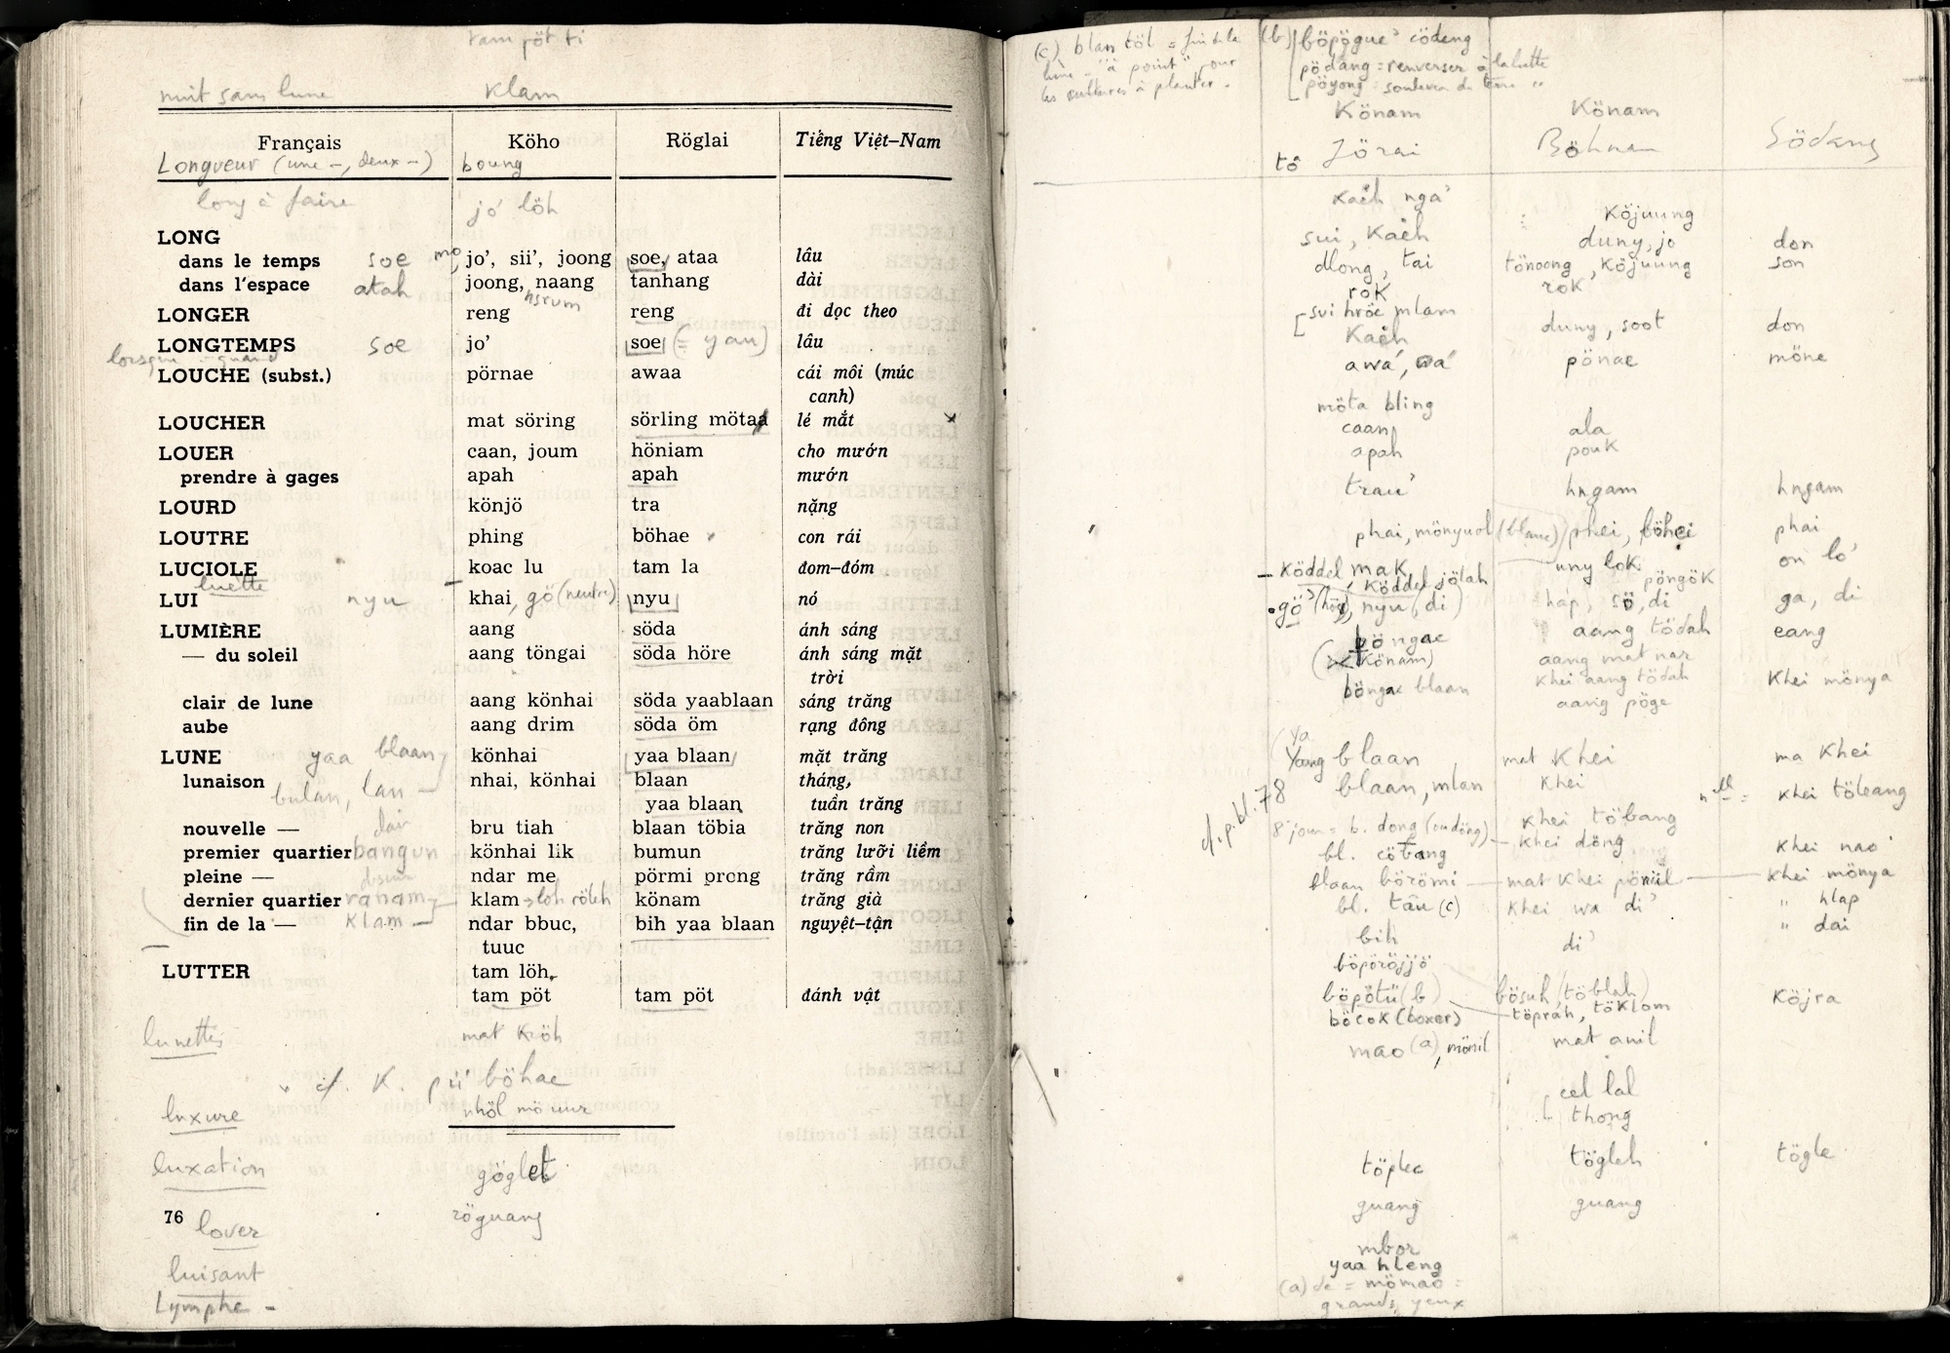 tam pöt ti
nuit sans lune klam
Français Köho Röglai Tiếng Việt–Nam
Longueur (une –, deux –) boung
long à faire jo' löh
LONG
dans le temps soe mo, jo', sii', joong soe, ataa lâu
dans l'espace atah joong, naang tanhang dài
hsrum
LONGER reng reng đi dọc theo
LONGTEMPS soe jo' soe (= yau) lâu
lorsque – quand
LOUCHE (subst.) pörnae awaa cái môi (múc
canh)
LOUCHER mat söring sörling mötaa lé mắt
LOUER caan, joum höniam cho mướn
prendre à gages apah apah mướn
LOURD könjö tra nặng
LOUTRE phing böhae con rái
LUCIOLE koac lu tam la đom–đóm
luette
LUI nyu khai, gö (neutre) nyu nó
LUMIÈRE aang söda ánh sáng
— du soleil aang töngai söda höre ánh sáng mặt
trời
clair de lune aang könhai söda yaablaan sáng trăng
aube aang drim söda öm rạng đông
LUNE yaa blaan, könhai yaa blaan mặt trăng
lunaison nhai, könhai blaan tháng,
bulan, lan – yaa blaan tuần trăng
nouvelle — bru tiah blaan töbia trăng non
premier quartier bangun könhai lik bumun trăng lưỡi liềm
pleine — ndar me pörmi prong trăng rầm
dernier quartier ranam klam → loh röleh könam trăng già
fin de la — klam – ndar bbuc, bih yaa blaan nguyệt–tận
tuuc
LUTTER tam löh,
tam pöt tam pöt đánh vật
lunettes mat kröh
cf. K. pii' böhae
luxure nhöl mö uur
luxation göglet
76
lover röguang
luisant
Lymphe –
(c) blan töl = fin de la
lune – "à point" pour
les cultures à planter.
(b) böpögue' cödeng
pödang = renverser à la lutte
pöyong = soulever de terre "
Könam Könam
tô Jörai Böhnar Södang
kaêh nga' köjuung
sui, kaêh duny, jo don
dlong, tai tönoong, köjuung son
rok rok
sui hröê mlam
kaêh duny, soot don
awa', wa' pönae möne
möta bling
caan ala
apah pouk
trau' hngam hngam
phai, mönyuol (blanc) phei, böhei phai
– köddel mak uny lok on lo'
köddel jölah pöngök
gö' (höy), nyu (di) hap, sö, di ga, di
pöngae aang tödah eang
(Könam) aang mat nar
böngae blaan khei aang tödah khei mönya
aang pöge
ya
Yang blaan mat khei ma khei
cf. p. bl. 78 blaan, mlan khei nlle = khei töleang
khei töbang
8 jour = b. dong (ou döng) – khei döng
bl. cöbang khei nao
blaan börömi – mat khei pönül – khei mönya
bl. tau (c) khei wa di' " hlap
bih di' " dai
böpöröjjö
böpötü (b) bösuh (töblah) köjra
böcok (boxer) töprah, töklom
mao (a), mönil mat anil
cel lal
thong
töplec tögleh tögle
guang guang
mbor
yaa hleng
(a) de = mömao =
grands yeux